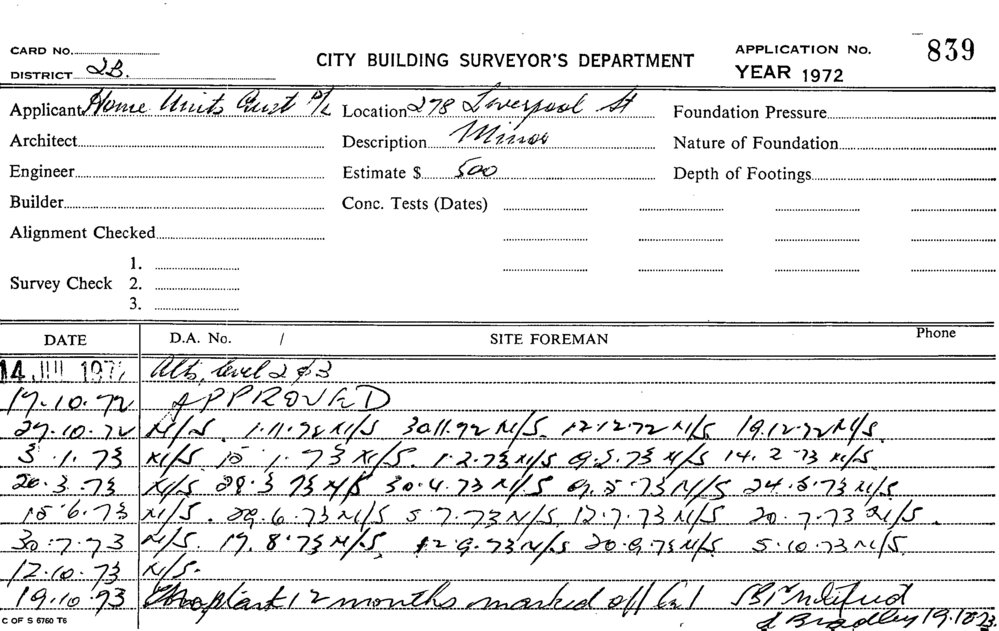 CARD No. CITY BUILDING SURVEYOR'S DEPARTMENT APPLICATION No. 839
DISTRICT 2B. YEAR 1972
Applicant Home Units Aust P/L Location 278 Liverpool St Foundation Pressure
Architect Description Minor Nature of Foundation
Engineer Estimate $ 500 Depth of Footings
Builder Conc. Tests (Dates)
Alignment Checked
1.
Survey Check 2.
3.
DATE D.A. No. / SITE FOREMAN Phone
14 JUL 1972 Alts, level 2 & 3
17.10.72 APPROVED
27.10.72 N/S. 1.11.72 N/S 30.11.72 N/S. 12.12.72 N/S 19.12.72 N/S.
3.1.73 N/S. 15.1.73 N/S. 1.2.73 N/S 9.2.73 N/S 14.2.73 N/S.
20.3.73 N/S 28.3.73 N/S 30.4.73 N/S 9.5.73 N/S 24.5.73 N/S
15.6.73 N/S. 29.6.73 N/S 5.7.73 N/S. 12.7.73 N/S 20.7.73 N/S.
30.7.73 N/S. 17.8.73 N/S. 12.9.73 N/S 20.9.73 N/S 5.10.73 N/S.
12.10.73 N/S.
19.10.73 12 months marked off
C OF S 6760 T6 Bradley 19.10.73.